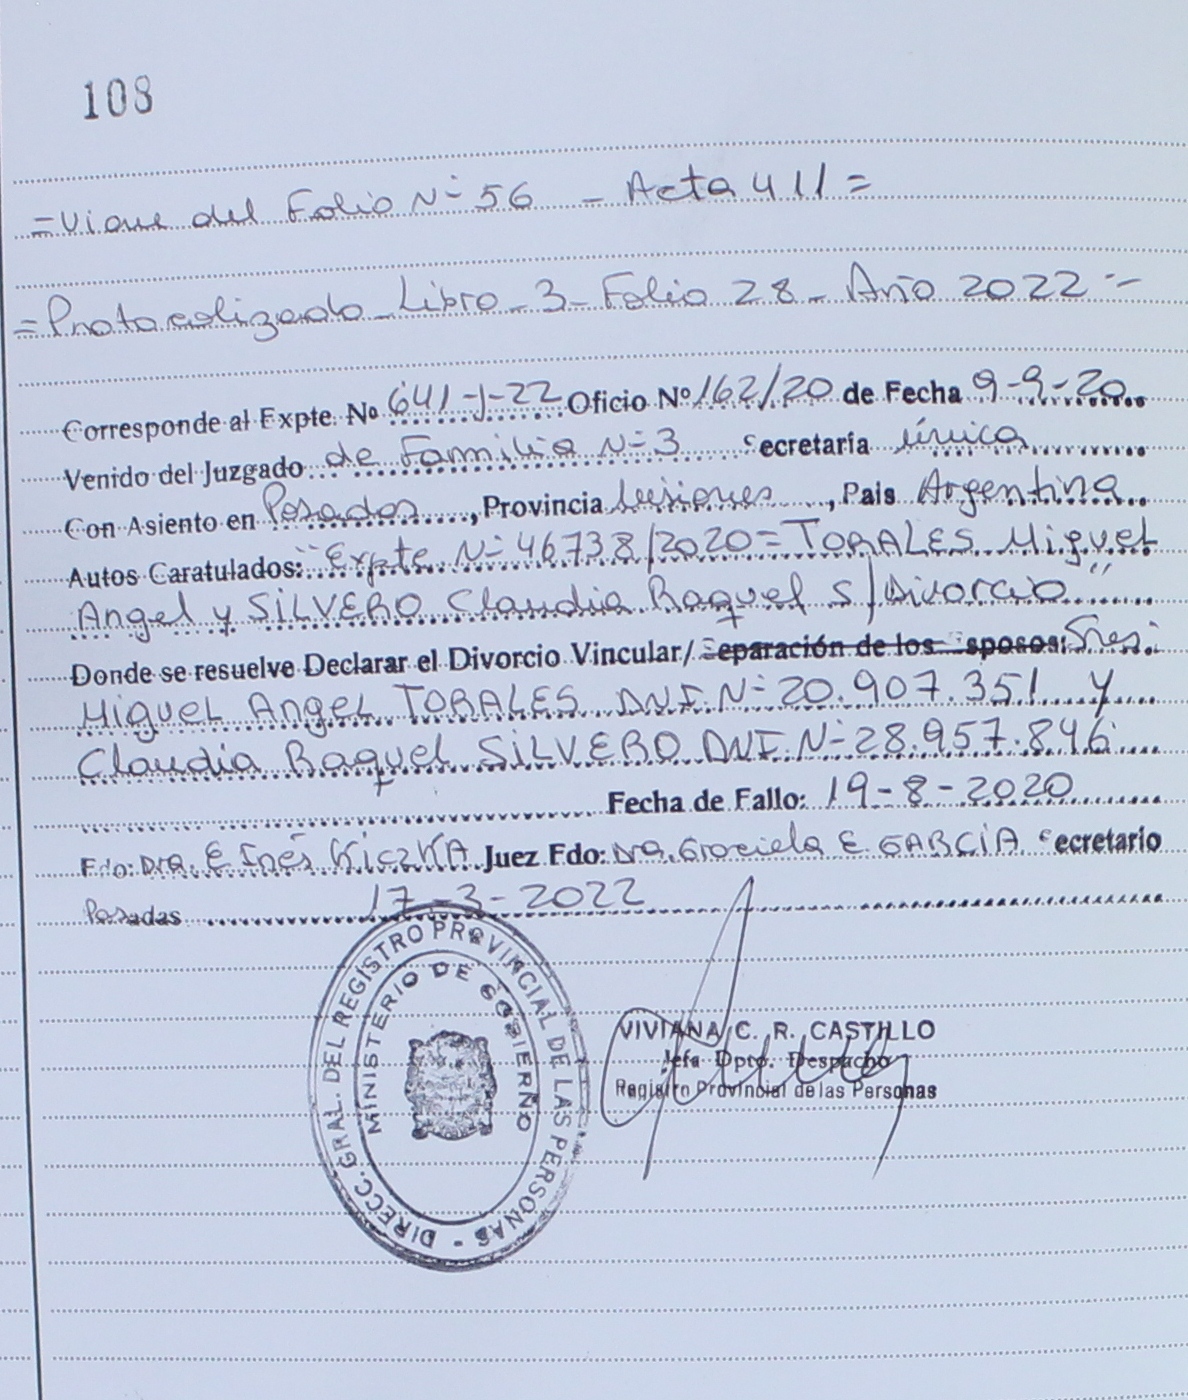 108
=Viene del Folio Nº 56 - Acta 411=
=Protocolizado Libro-3-Folio 28- Año 2022=-
Corresponde al Expte. Nº 641-J-22 Oficio Nº 162/20 de Fecha 9-9-20
Venido del Juzgado de Familia Nº 3 Secretaría única
Con Asiento en Posadas, Provincia Misiones, Pais Argentina
Autos Caratulados: "Expte Nº 46738/2020=TORALES Miguel
Angel y SILVERO Claudia Raquel S/Divorcio"
Donde se resuelve Declarar el Divorcio Vincular/ Separación de los Esposos: Sres:
Miguel Angel TORALES DNI.Nº 20.907.351 y
Claudia Raquel SILVERO DNI.Nº 28.957.846
Fecha de Fallo: 19-8-2020
Fdo: Dra. E Inés KiczKA Juez Fdo: Dra. Graciela E. GARCÍA Secretario
Posadas 17-3-2022
DIRECC. GRAL. DEL REGISTRO PROVINCIAL DE LAS PERSONAS -
MINISTERIO DE GOBIERNO
VIVIANA C. R. CASTILLO
Jefa Dpto. Despacho
Registro Provincial de las Personas